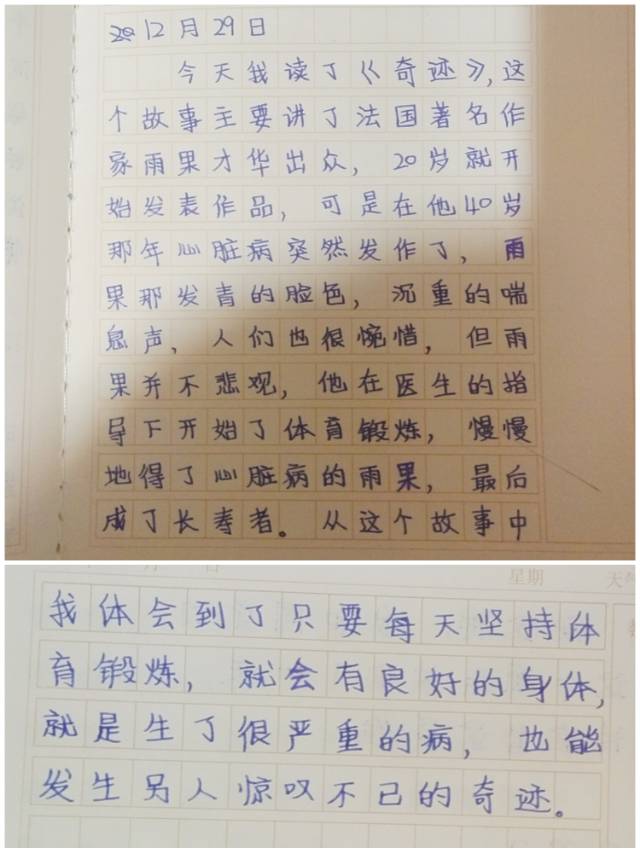 12月29日
今天我读了《奇迹》,这
个故事主要讲了法国著名作
家雨果才华出众，20岁就开
始发表作品，可是在他40岁
那年心脏病突然发作了，雨
果那发青的脸色，沉重的喘
息声，人们也很惋惜，但雨
果并不悲观，他在医生的指
导下开始了体育锻炼，慢慢
地得了心脏病的雨果，最后
成了长寿者。从这个故事中
星期 天气
我体会到了只要每天坚持体
育锻炼，就会有良好的身体,
就是生了很严重的病，也能
发生另人惊叹不已的奇迹。